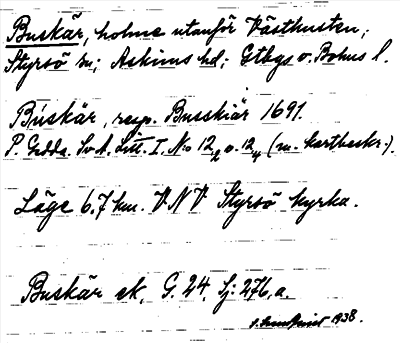 Buskär, holme utanför Västkusten;
Styrsö sn; Askims hd; Gtbgs o. Bohus l.
Buskär, resp. Busskiär 1691.
P. Gedda. Sv. A. Litt. I, N:o 12, o. 12, (m. kartbeskr.).
Läge 6.7 km. VNV Styrsö kyrka.
Buskär ek, G. 24, Sj: 276, a.
1938.